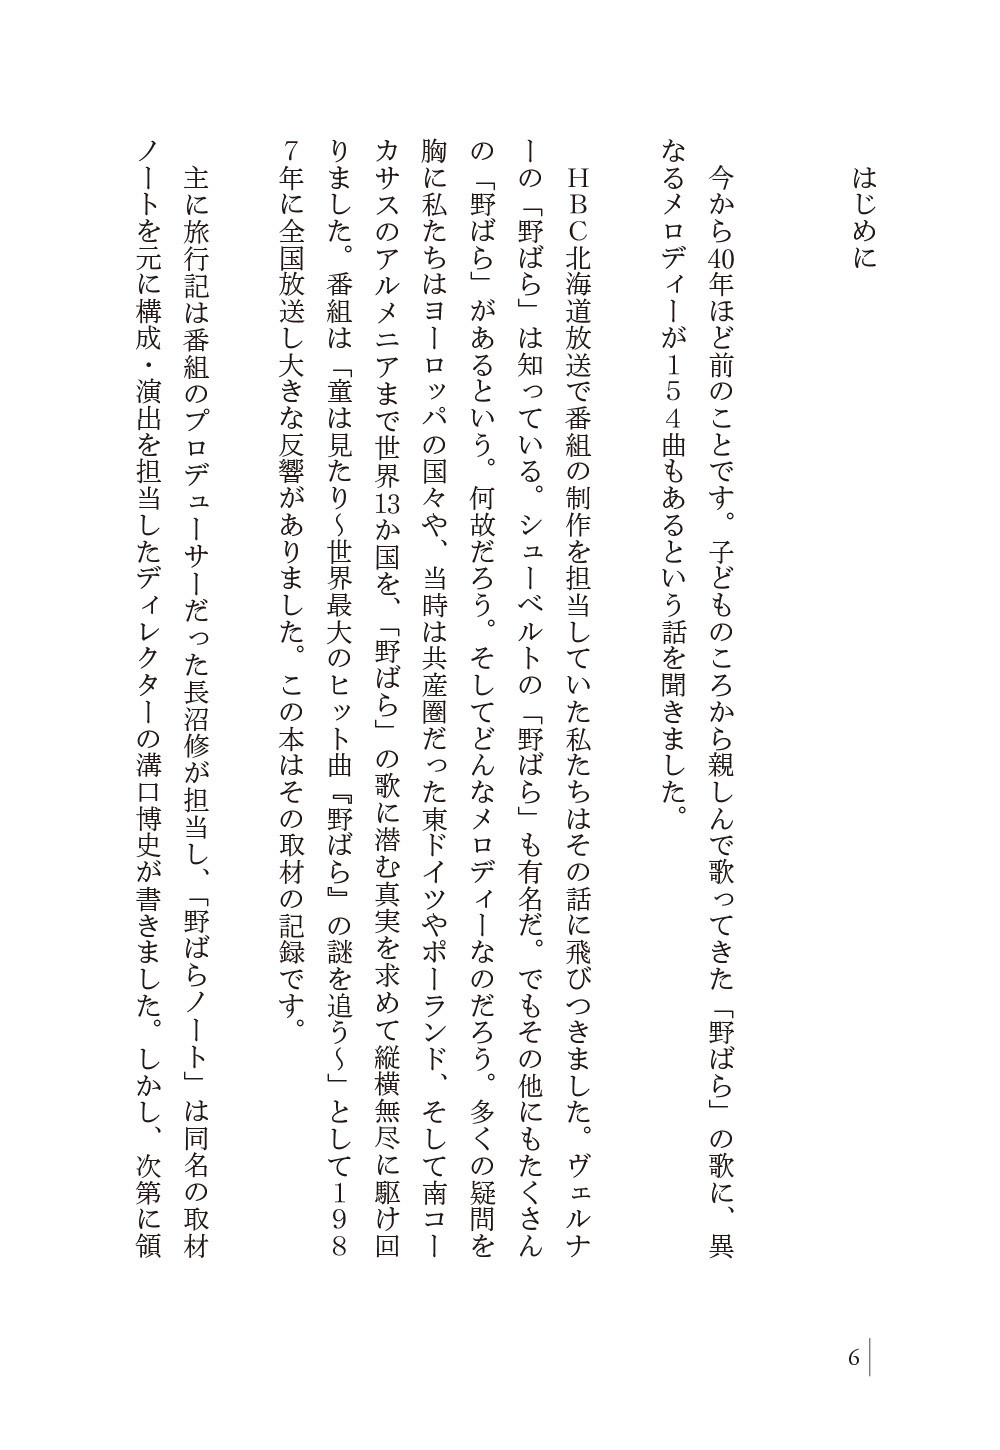 はじめに
今から40年ほど前のことです。子どものころから親しんで歌ってきた「野ばら」の歌に、異
なるメロディーが１５４曲もあるという話を聞きました。
ＨＢＣ北海道放送で番組の制作を担当していた私たちはその話に飛びつきました。ヴェルナ
ーの「野ばら」は知っている。シューベルトの「野ばら」も有名だ。でもその他にもたくさん
の「野ばら」があるという。何故だろう。そしてどんなメロディーなのだろう。多くの疑問を
胸に私たちはヨーロッパの国々や、当時は共産圏だった東ドイツやポーランド、そして南コー
カサスのアルメニアまで世界13か国を、「野ばら」の歌に潜む真実を求めて縦横無尽に駆け回
りました。番組は「童は見たり～世界最大のヒット曲『野ばら』の謎を追う～」として１９８
７年に全国放送し大きな反響がありました。この本はその取材の記録です。
主に旅行記は番組のプロデューサーだった長沼修が担当し、「野ばらノート」は同名の取材
ノートを元に構成・演出を担当したディレクターの溝口博史が書きました。しかし、次第に領
6